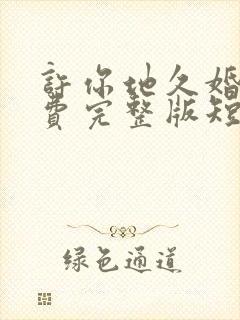 許你地久婚
費完整版短
绿色通道